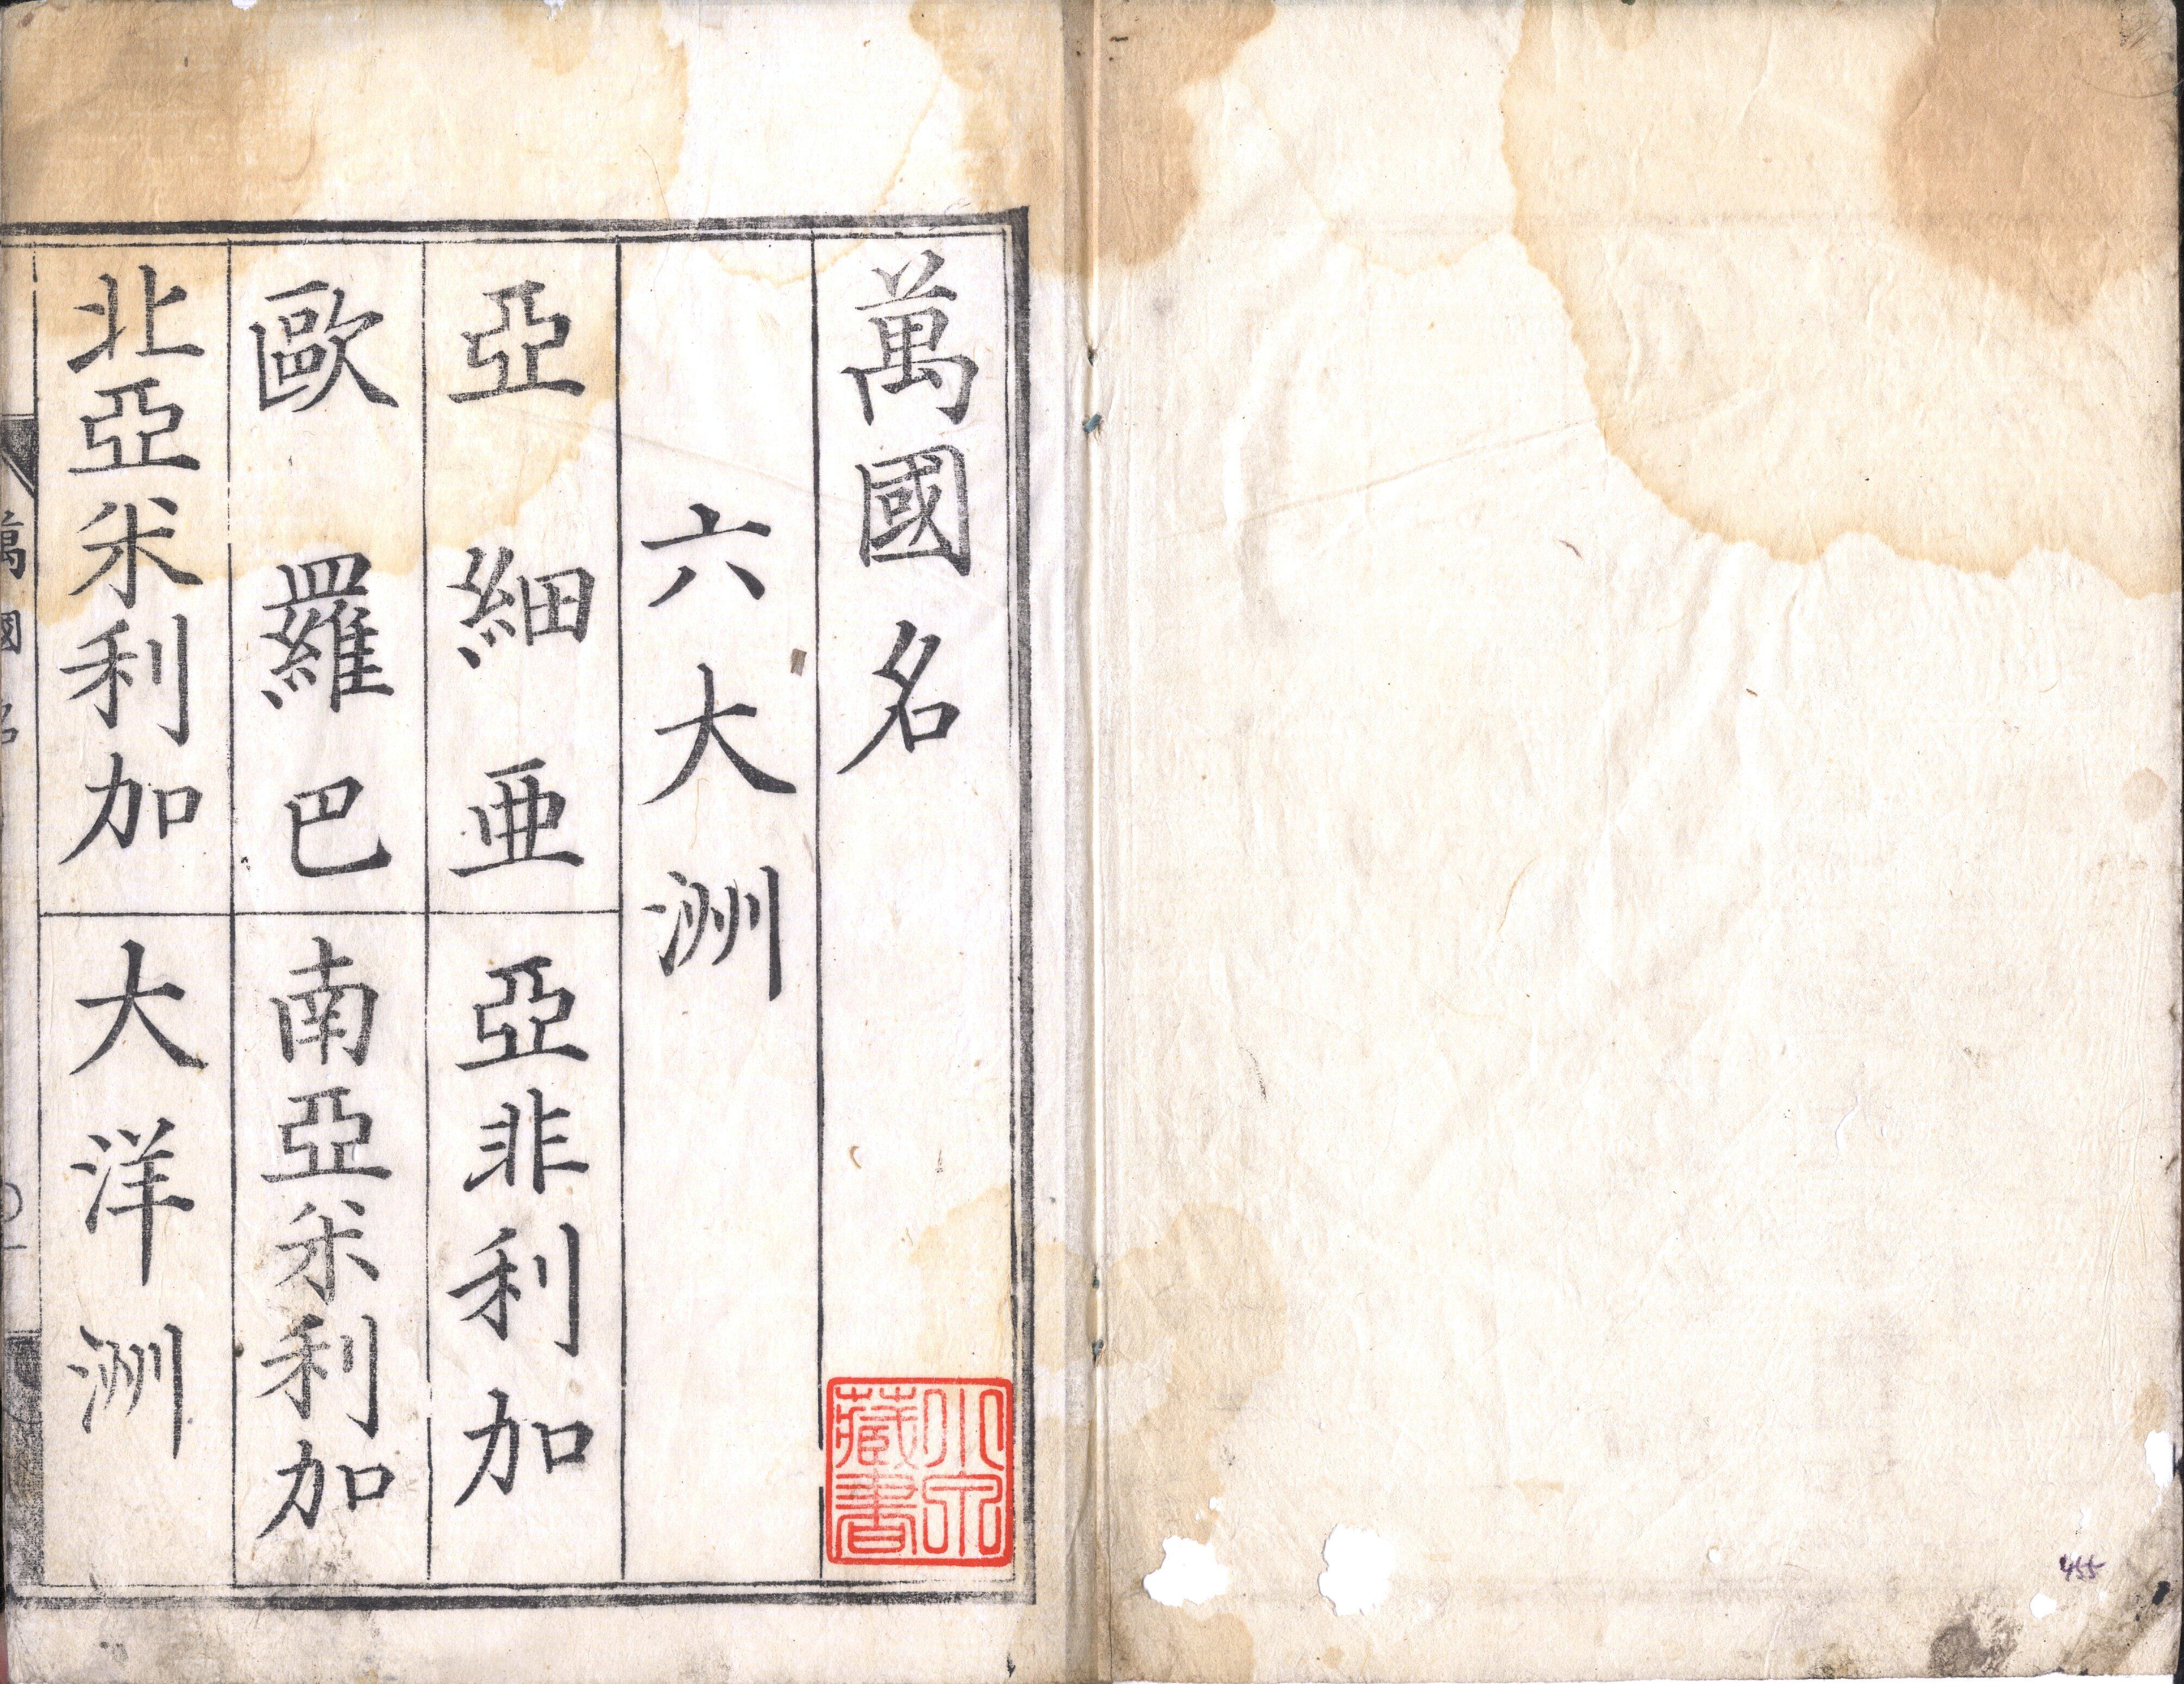 455
萬國名
藏書
六大洲
亞細亜
亞非利加
歐羅巴
南亞米利加
北亞米利加
大洋洲
萬國名